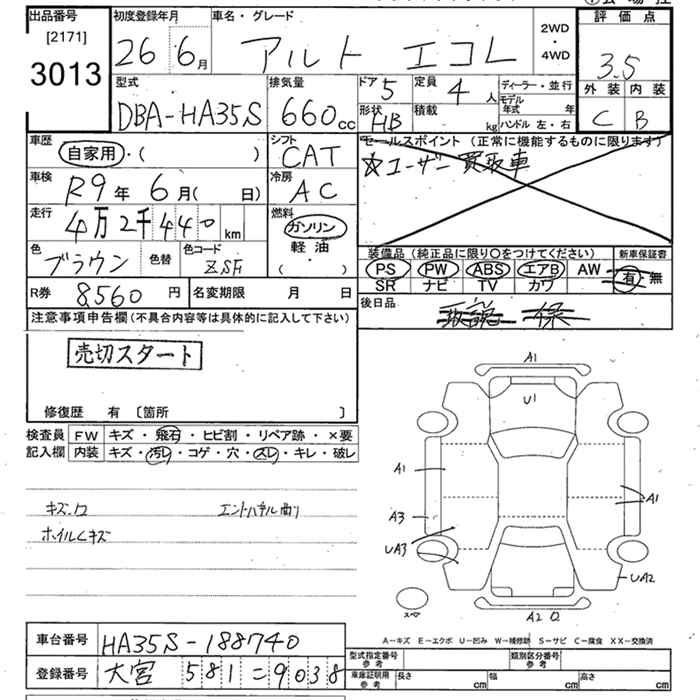 出品番号 初度登録年月 車名・グレード 評価点
[2171]
3013
26年 6月 アルト エコL 2WD・4WD 3.5
型式 排気量 ドア 5 定員 4人 ディーラー・並行 外装 内装
DBA-HA35S 660cc 形状 HB 積載 kg モデル年式 年 ハンドル 左・右 C B
車歴 自家用・( ) シフト CAT セールスポイント (正常に機能するものに限ります)
☆ユーザー買取車
車検 R9年 6月( 日) 冷房 AC
走行 4万2千440km 燃料 ガソリン 軽油 ・( )
色 ブラウン 色替 色コード ZSH
装備品 (純正品に限り○をつけてください) 新車保証書
PS PW ABS エアB AW 有・無
SR ナビ TV カワ
R券 8560円 名変期限 月 日
後日品
注意事項申告欄(不具合内容等は具体的に記入して下さい)
売切スタート
修復歴 有 〔箇所 〕
検査員 FW キズ・飛石・ヒビ割・リペア跡・×要
記入欄 内装 キズ・汚レ・コゲ・穴・スレ・キレ・破レ
キズ、凹 エンドパネル曲り
ホイルキズ
A1
U1
A1
A1
A3
UA3
UA2
A2
車台番号 HA35S-188740
登録番号 大宮 581 ニ 9038
A-キズ E-エクボ U-凹み W-補修跡 S-サビ C-腐食 XX-交換済
型式指定番号 参考 類別区分番号 参考
車庫証明用 参考 長さ cm 幅 cm 高さ cm